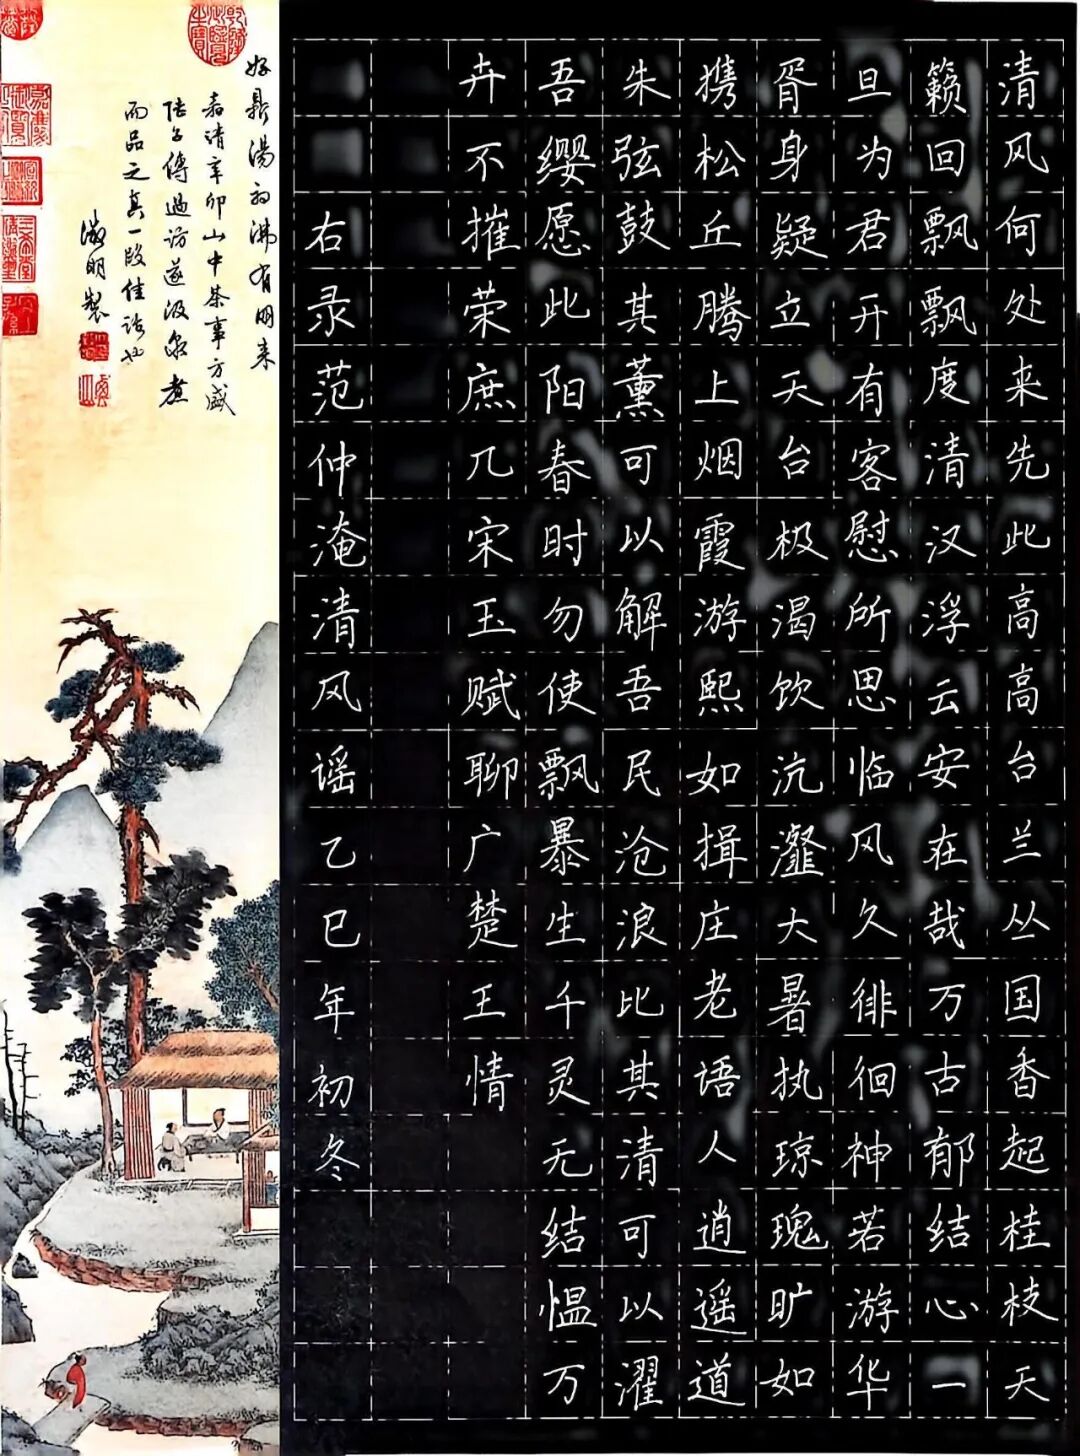 清风何处来先此高高台兰丛国香起桂枝天
籁回飘飘度清汉浮云安在哉万古郁结心一
旦为君开有客慰所思临风久徘徊神若游华
胥身疑立天台极渴饮沆瀣大暑执琼瑰旷如
携松丘腾上烟霞游熙如揖庄老语人逍遥道
朱弦鼓其薰可以解吾民沧浪比其清可以濯
吾缨愿此阳春时勿使飘暴生千灵无结愠万
卉不摧荣庶几宋玉赋聊广楚王情
右录范仲淹清风谣乙巳年初冬
好鼎湯初沸有朋来
嘉靖辛卯山中茶事方盛
陆子傅過访遂汲泉煮
而品之真一段佳话也
徵明製